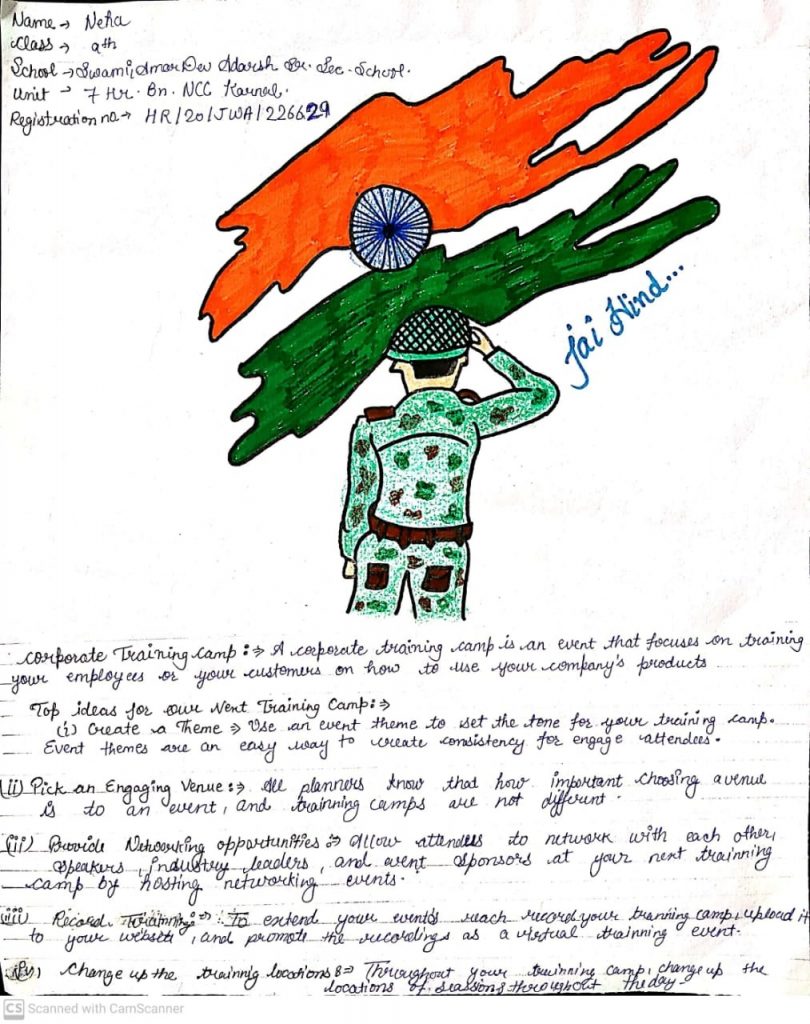 Name → Neha
Class → 9th
School → Swami Amar Dev Adarsh Sr. Sec. School.
Unit → 7 Hr. Bn. NCC Karnal.
Registration no → HR/20/JWA/226629
Jai Hind...
Corporate Training Camp :⇒ A corporate training camp is an event that focuses on training
your employees or your customers on how to use your company's products
Top ideas for our Next Training Camp :⇒
(i) Create a Theme ⇒ Use an event theme to set the tone for your training camp.
Event themes are an easy way to create consistency for engage attendees.
(ii) Pick an Engaging Venue :⇒ All planners know that how important choosing avenue
is to an event, and trainning camps are not different.
(iii) Provide Networking opportunities :⇒ Allow attendees to network with each other,
speakers, industry leaders, and event sponsors at your next trainning
camp by hosting networking events.
(iiii) Record Trainning :⇒ To extend your events reach record your tranning camp, upload it
to your website, and promote the recordings as a virtual trainning event.
Change up the trainnig locations ⇒ Throughout your trainning camp, change up the
locations of seasons throughout the day.
CS Scanned with CamScanner